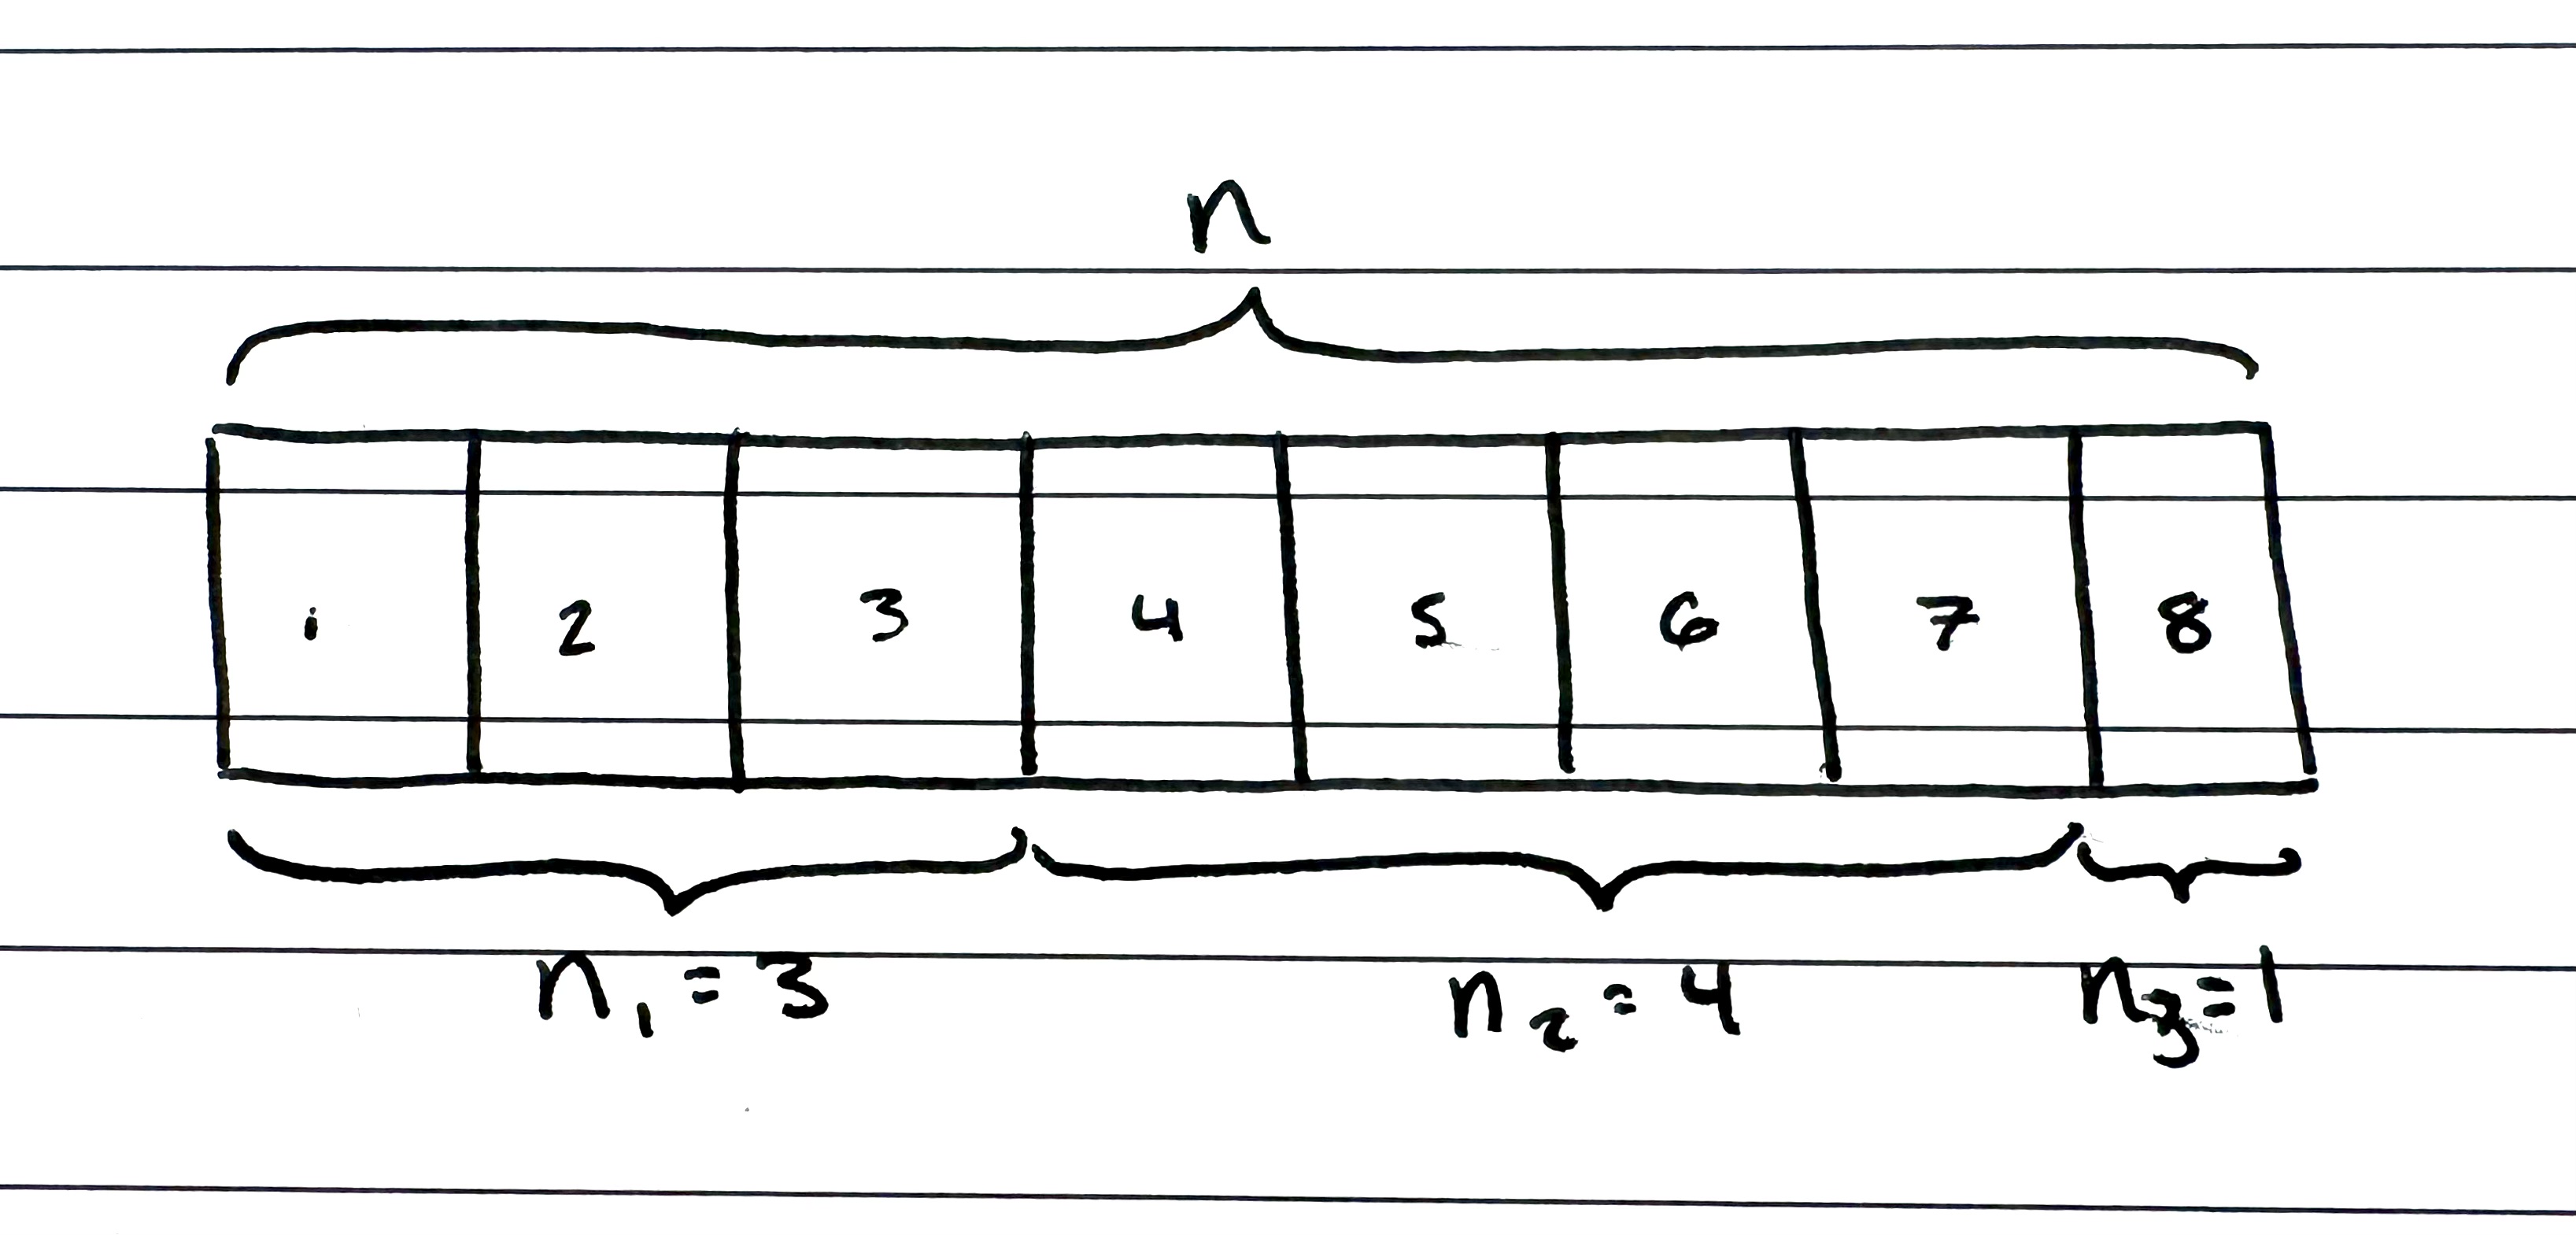 n
1 2 3 4 5 6 7 8
n₁ = 3 n₂ = 4 n₃ = 1